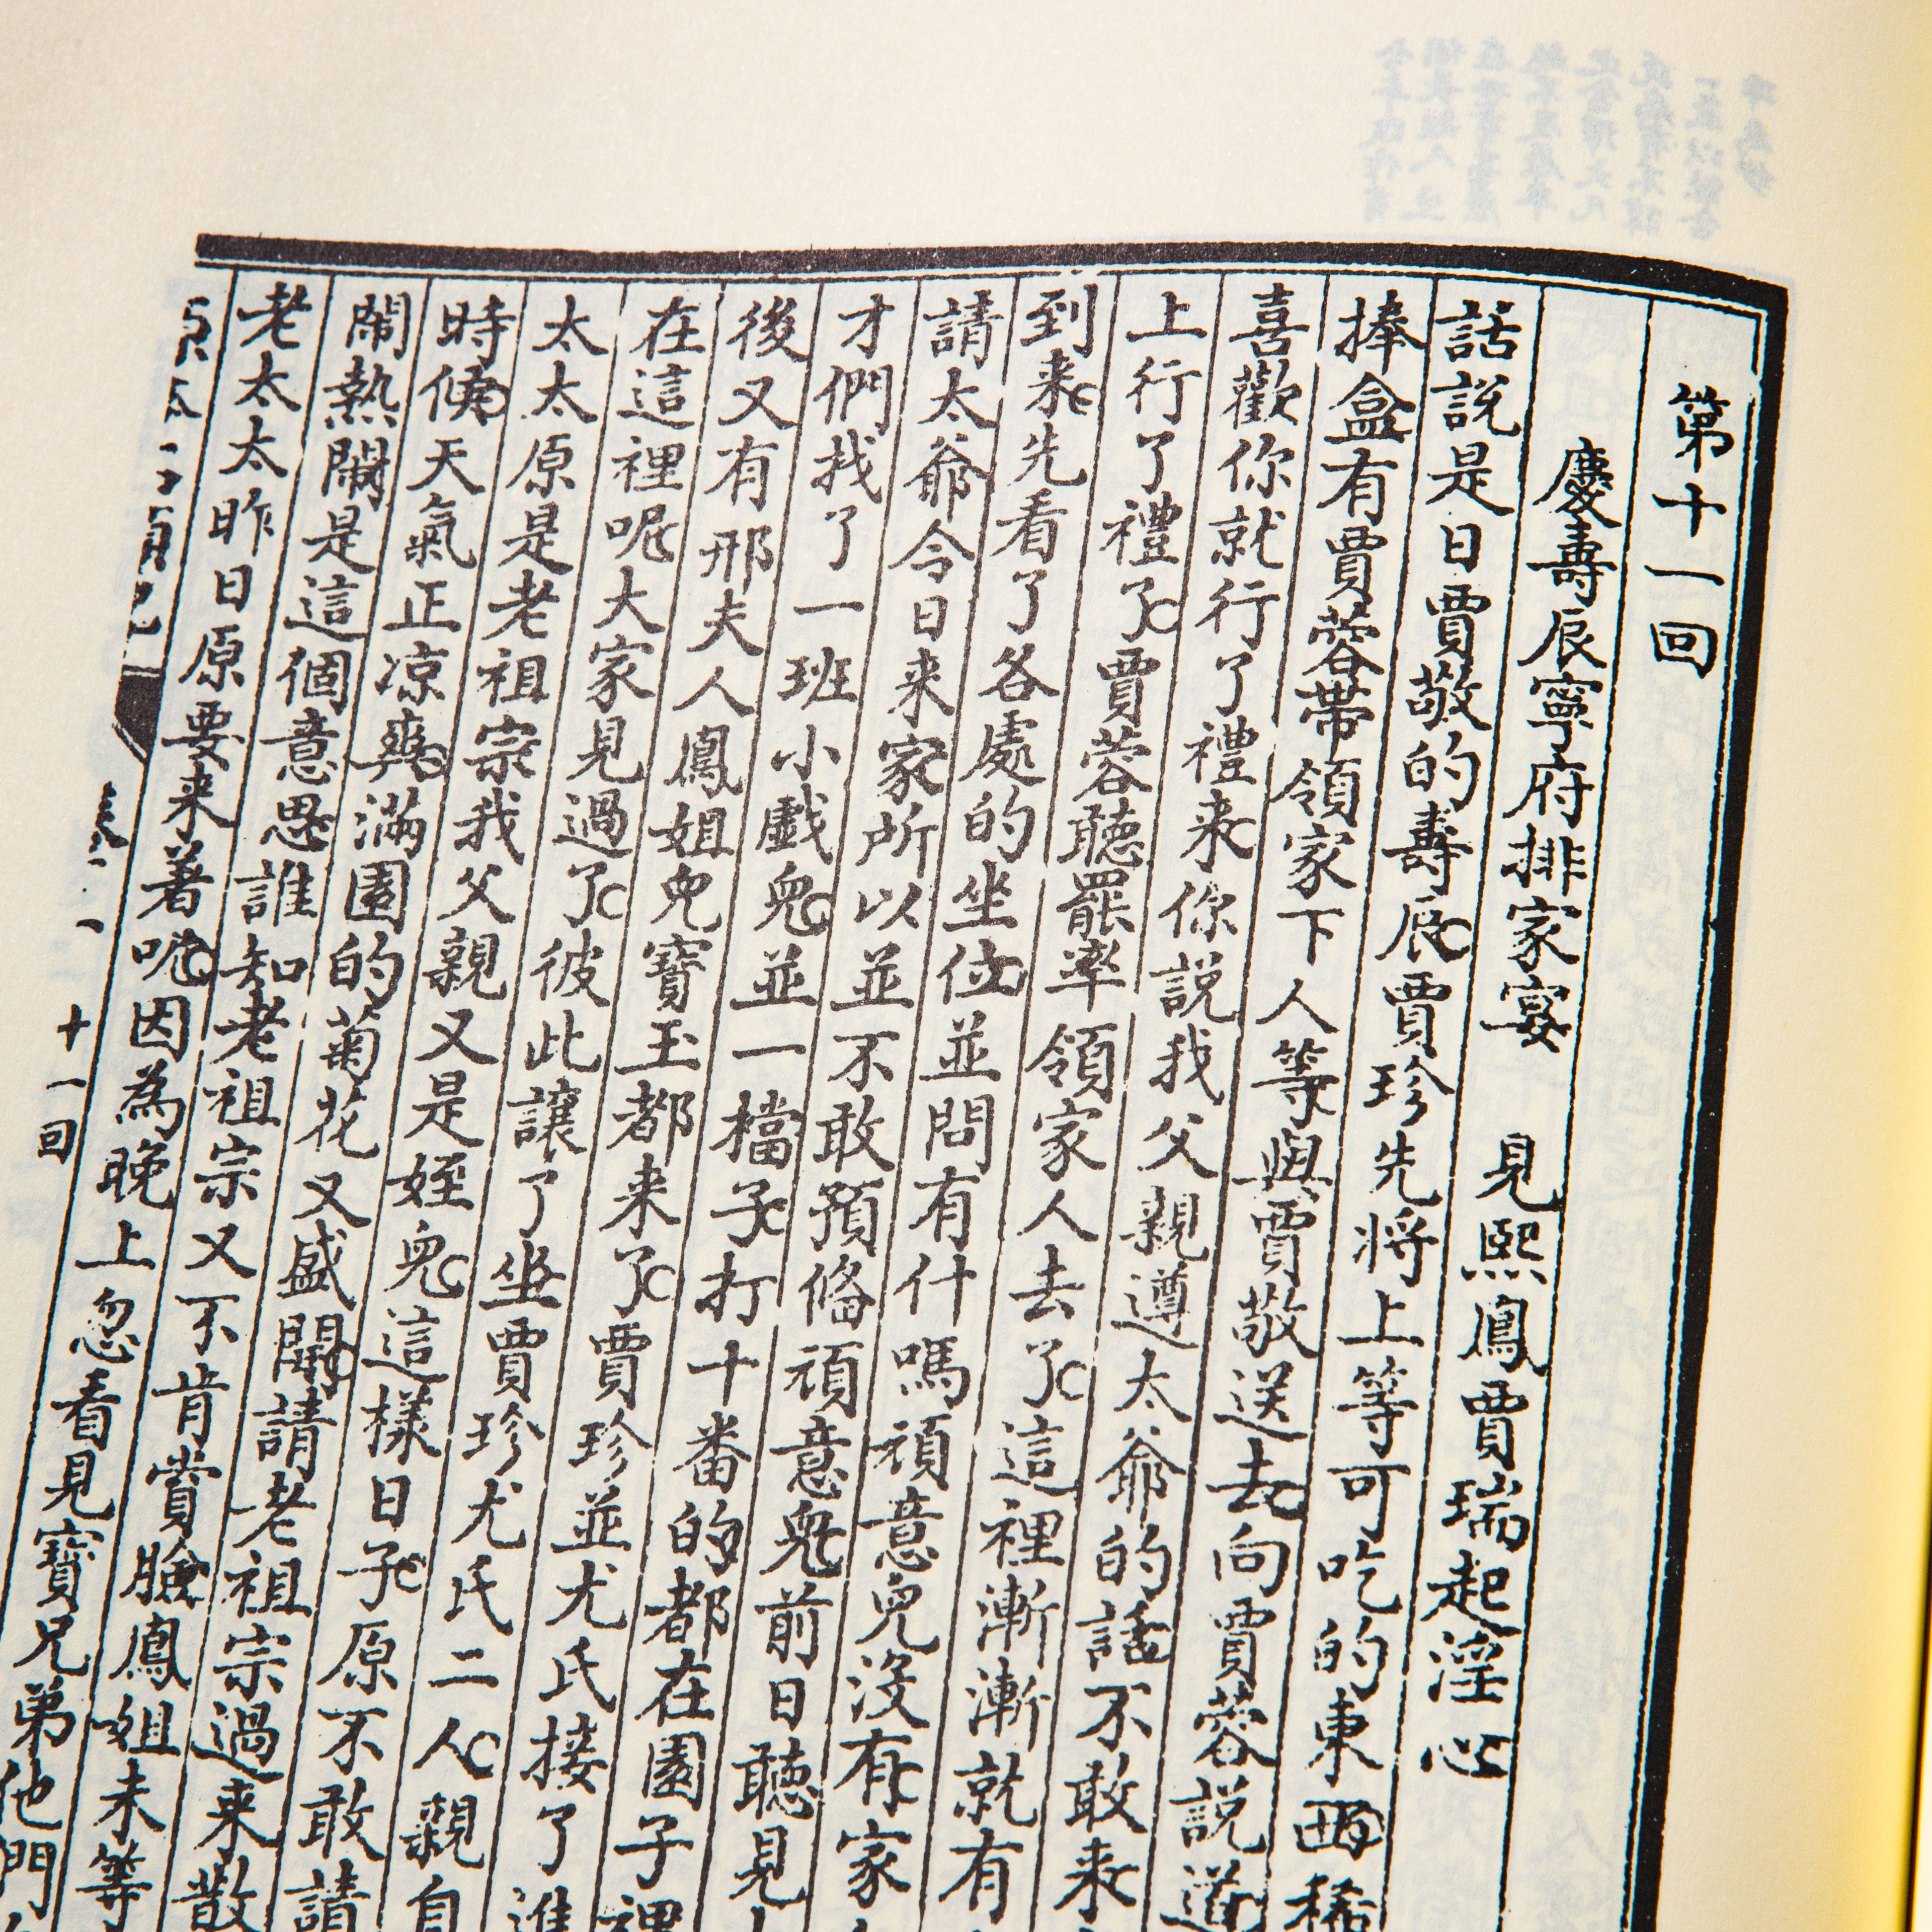 第十一回
慶壽辰寧府排家宴 見熙鳳賈瑞起淫心
話説是日賈敬的壽辰賈珍先將上等可吃的東西稀
捧盒有賈蓉帶領家下人等與賈敬送去向賈蓉説道
喜歡你就行了禮来你説我父親遵太爺的話不敢来
上行了禮了賈蓉聽罷率領家人去了這裡漸漸就有
到来先看了各處的坐位並問有什嗎頑意兒没有家
請太爺今日来家所以並不敢預俻頑意兒前日聽見
才們找了一班小戲兒並一檔子打十番的都在園子裡
後又有邢夫人鳳姐兒寶玉都来了賈珍並尤氏接了進
在這裡呢大家見過了彼此讓了坐賈珍尤氏二人親自
太太原是老祖宗我父親又是姪兒這樣日子原不敢請
時候天氣正凉爽満園的菊花又盛開請老祖宗過来散
鬧熱鬧是這個意思誰知老祖宗又不肯賞臉鳳姐未等
老太太昨日原要来着呢因為晚上忽看見寶兄弟他們
十一回